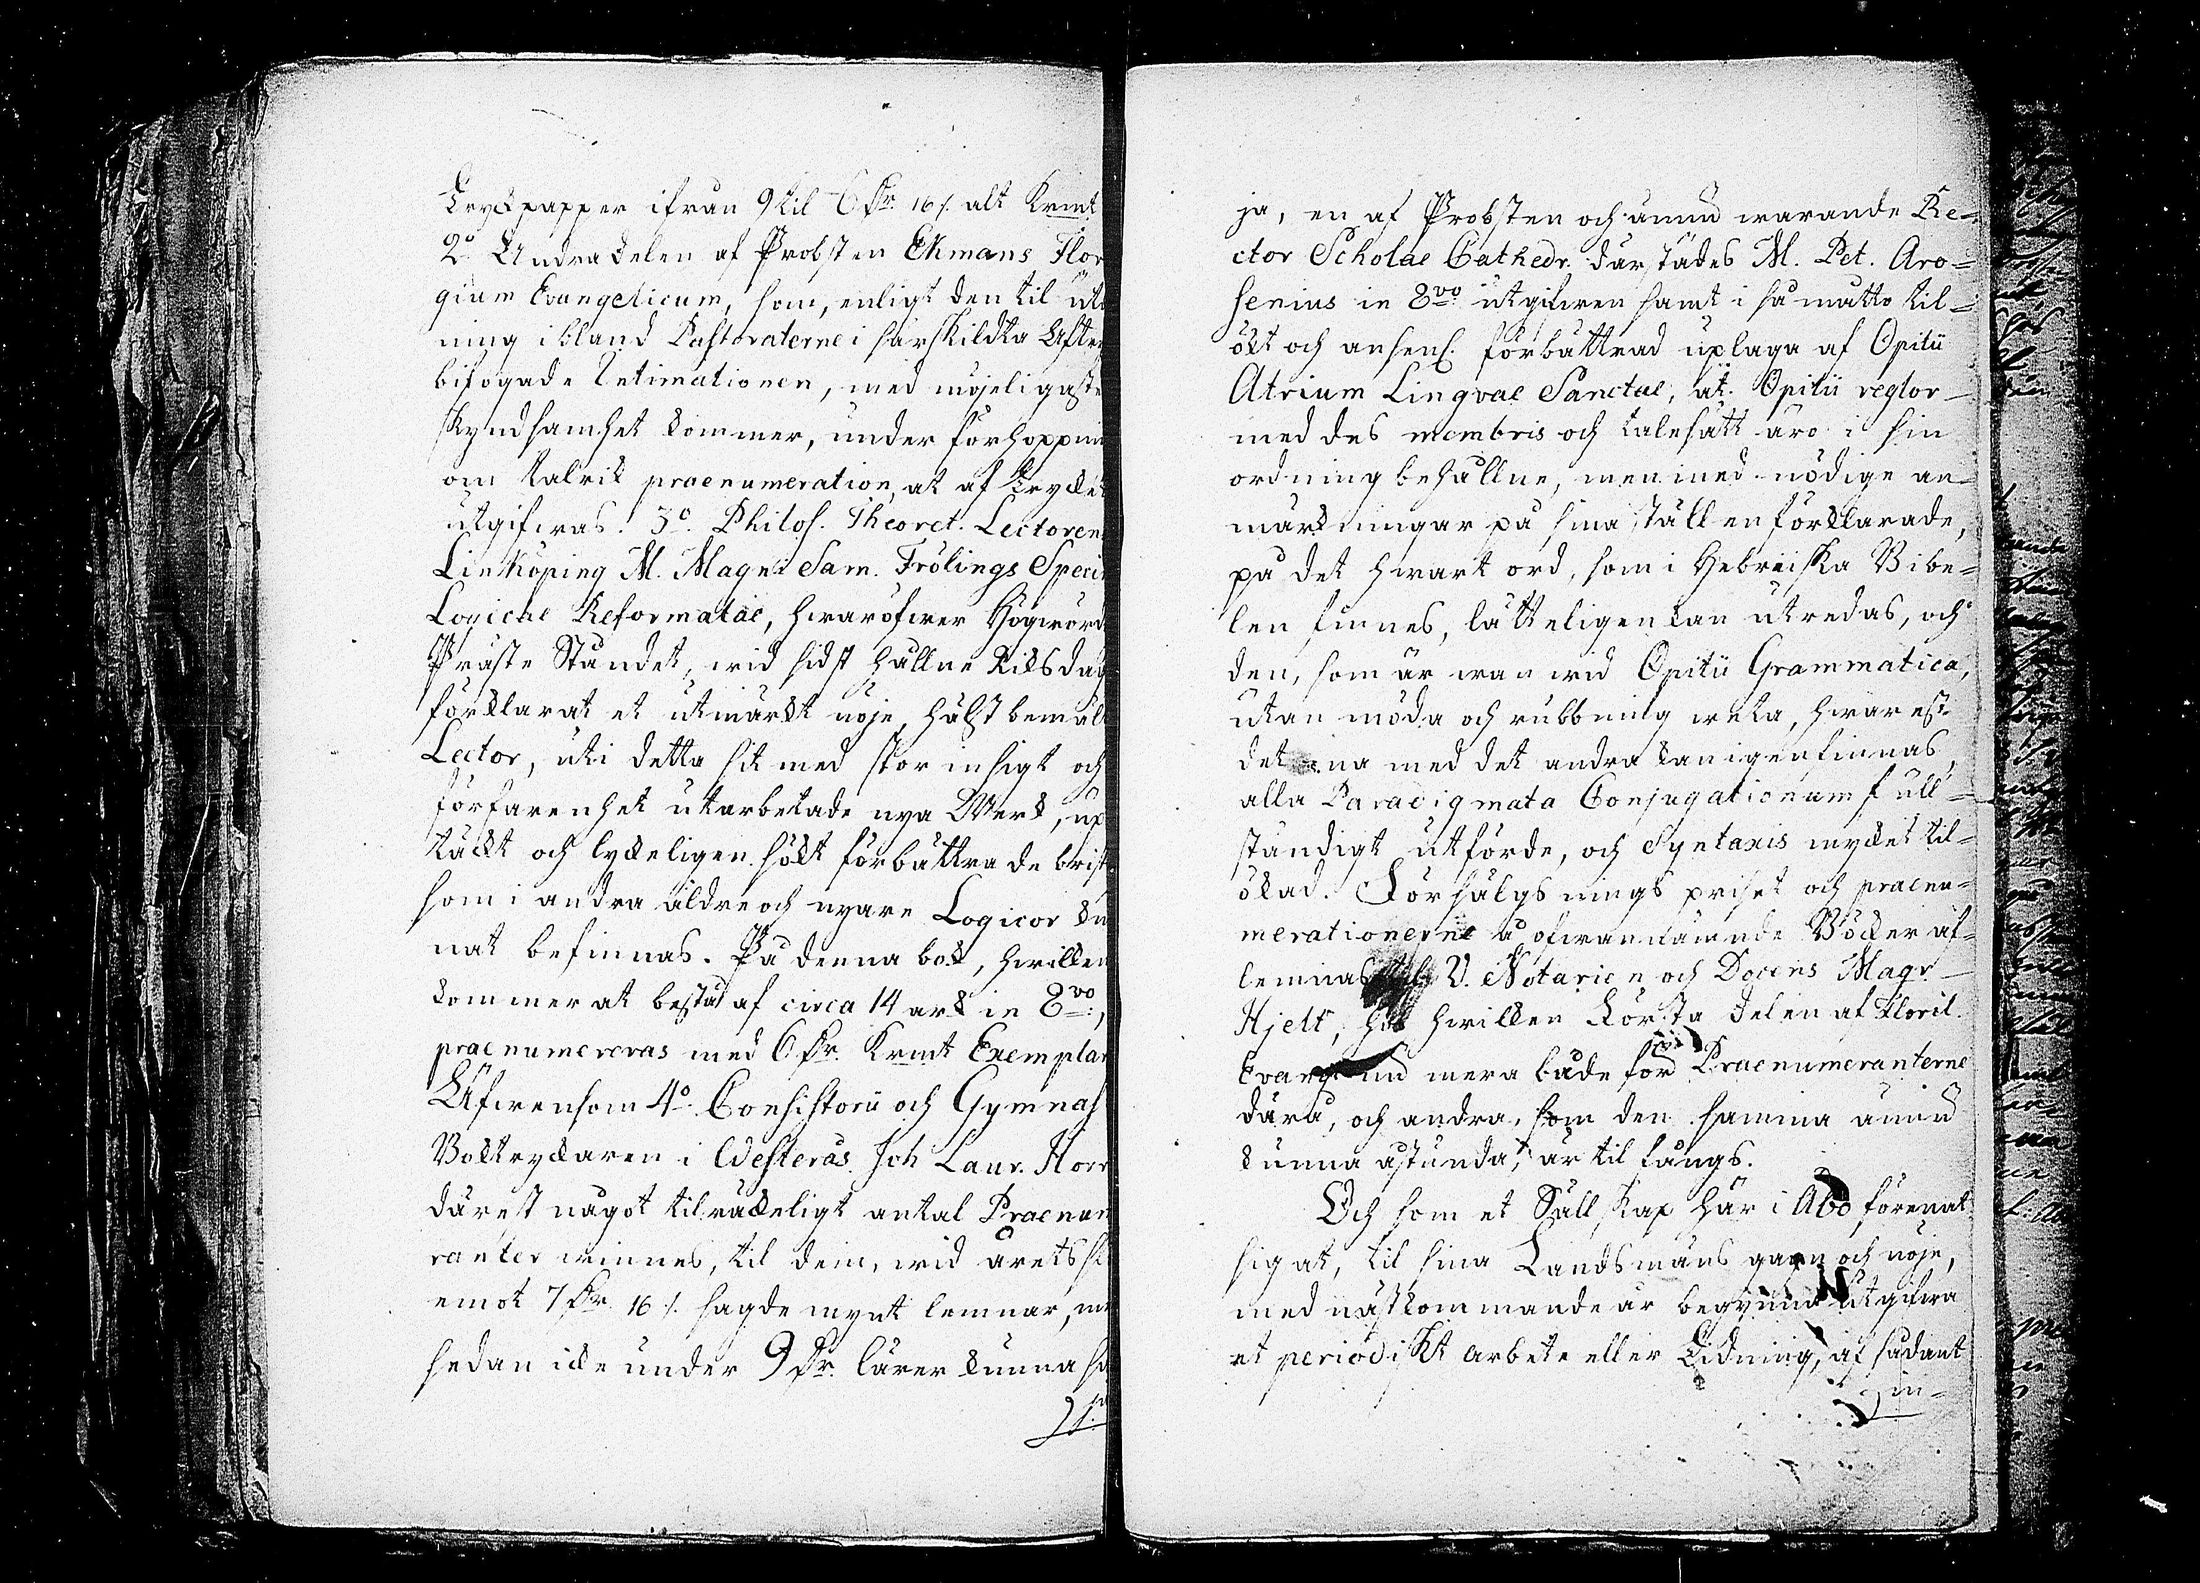 Tryckpapper ifrån 9 til 6 Dlr. 16 /. alt Krmt
2:o Andra delen af Probsten Ekmans Flor
gium Evangelicum, som, enligt den til utd
ning ibland Pastoraterne i särskildta Aftry
bifogade Intimationen, med möjeligaste
skyndsamhet kommer, under förhoppnin
om talrik praenumeration, at af trycket
utgifwas. 3:o Philos. Theoret. Lectoren
Linköping M. Magni Sam. Frölings Speci
Logicae Reformatae, hwaröfwer Högwörd
Präste Ståndet, wid sidst hållne Riksdag
förklarat et utmärkt nöje, hälst bemäl
Lector, uti detta sit med stor insigt och
förfarenhet utarbetade nya Werk, up
täckt och lyckeligen sökt förbättra de brist
som i andra äldre och nyare Logicor ku
nat befinnas. På denna bok, hwilken
kommer at bestå af circa 14 ark in 8:vo,
praenumereras med 6 Dlr. Krmt Exemplar
Äfwensom 4:o Consistorii och Gymnas
Boktryckaren i Westerås Joh Laur. Horr
därest något tilräckeligt antal Praenum
ranter winnes, til dem, wid årets sl
emot 7 Dlr 16 /. sagde mynt lemnar, me
sedan icke under 9 Dlr. lärer kunna sä
ja, en af Probsten och ännu warande Re-
ctor Scholae Cathedr. därstädes M. Pet. Aro-
senius in 8:vo utgifwen samt i så måtto til-
ökt och ansenl. förbättrad uplaga af Opitii
Atrium Lingvae Sanctae, at Opitii reglor
med des membris och talesätt äro i sin
ordning behållne, men med nödige an-
märkningar på sina ställen förklarade,
på det hwart ord, som i Hebreiska Bibe-
len finnes, lätteligen kan utredas, och
den, som är wan wid Opitii Grammatica,
utan möda och rubbning weta, hwarest
det ena med det andra kan igenfinnas,
alla Paradigmata Conjugationum full-
ständigt utförde, och Syntaxis mycket til-
ökad. Försälgsnings priset och praenu-
merationerne å ofwannämnde Böcker af-
lemnas til V. Notarien och Docens Magr
Hjelt, hos hwilken Första delen af Floril.
Evang. nu mera både för Praenumeranterne
därå, och andra, som den samma ännu
kunna åstunda, är til fångs.
Och som et Sällskap här i Åbo förenat
sig at, til sina Landsmäns gagn och nöje,
med nästkommande år begynna utgifwa
et periodiskt arbete eller Tidning, af sådant
in-